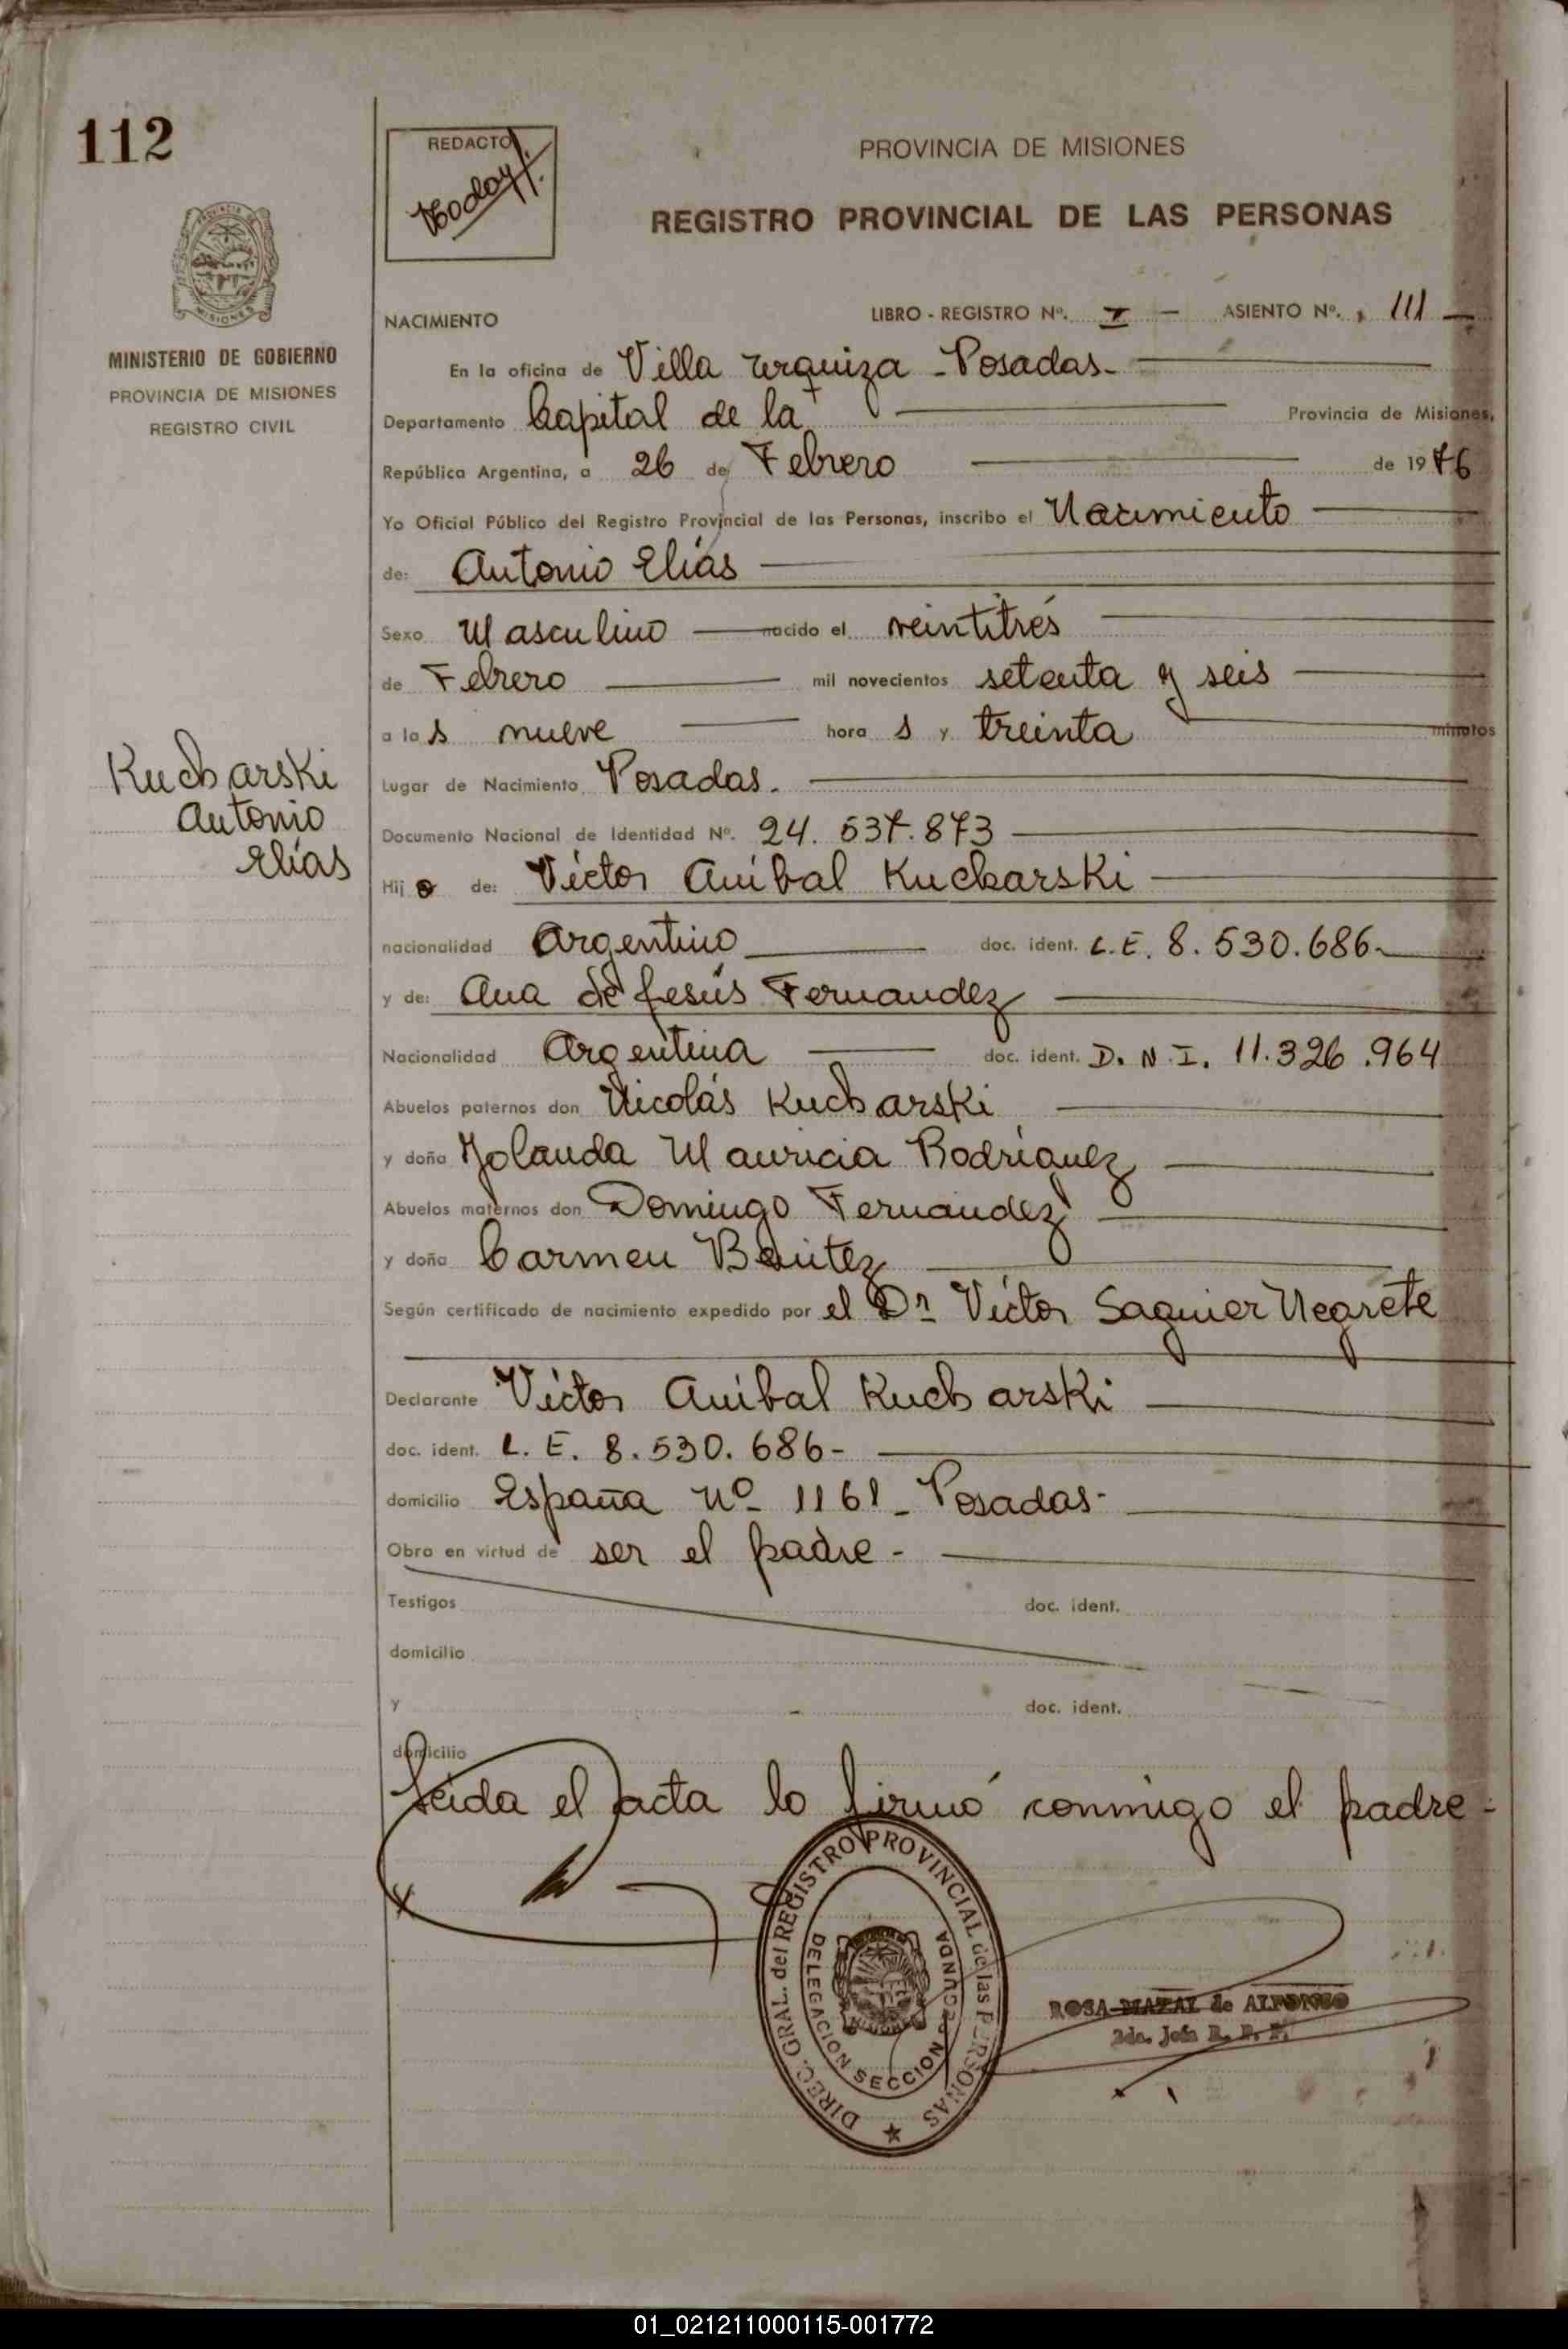 112
REDACTO
PROVINCIA DE MISIONES
REGISTRO PROVINCIAL DE LAS PERSONAS
PROVINCIA DE
MISIONES
MINISTERIO DE GOBIERNO
PROVINCIA DE MISIONES
REGISTRO CIVIL
NACIMIENTO LIBRO - REGISTRO Nº. I - ASIENTO Nº. 111
En la oficina de Villa Urquiza - Posadas -
Departamento Capital de la Provincia de Misiones,
República Argentina, a 26 de Febrero de 1976
Yo Oficial Público del Registro Provincial de las Personas, inscribo el Nacimiento
de: Antonio Elías
Sexo Masculino nacido el veintitrés
de Febrero mil novecientos setenta y seis
a las nueve horas y treinta minutos
Kucharski
Antonio
Elías
Lugar de Nacimiento Posadas.
Documento Nacional de Identidad Nº. 24.537.873
Hijo de: Víctor Aníbal Kucharski
nacionalidad Argentino doc. ident. L.E. 8.530.686-
y de: Ana de Jesús Fernandez
Nacionalidad Argentina doc. ident. D.N.I. 11.326.964
Abuelos paternos don Nicolás Kucharski
y doña Yolanda Mauricia Rodríguez
Abuelos maternos don Domingo Fernandez
y doña Carmen Benitez
Según certificado de nacimiento expedido por el Dr Víctor Saguier Negrete
Declarante Víctor Aníbal Kucharski
doc. ident. L.E. 8.530.686-
domicilio España Nº 1161 - Posadas-
Obra en virtud de ser el padre -
Testigos doc. ident.
domicilio
y doc. ident.
domicilio
Leida el acta lo firmó conmigo el padre -
DIREC. GRAL. del REGISTRO PROVINCIAL de las PERSONAS
DELEGACION SECCION SEGUNDA
ROSA MAZAL de ALFONSO
2da. Jefa R. P. P.
01_021211000115-001772